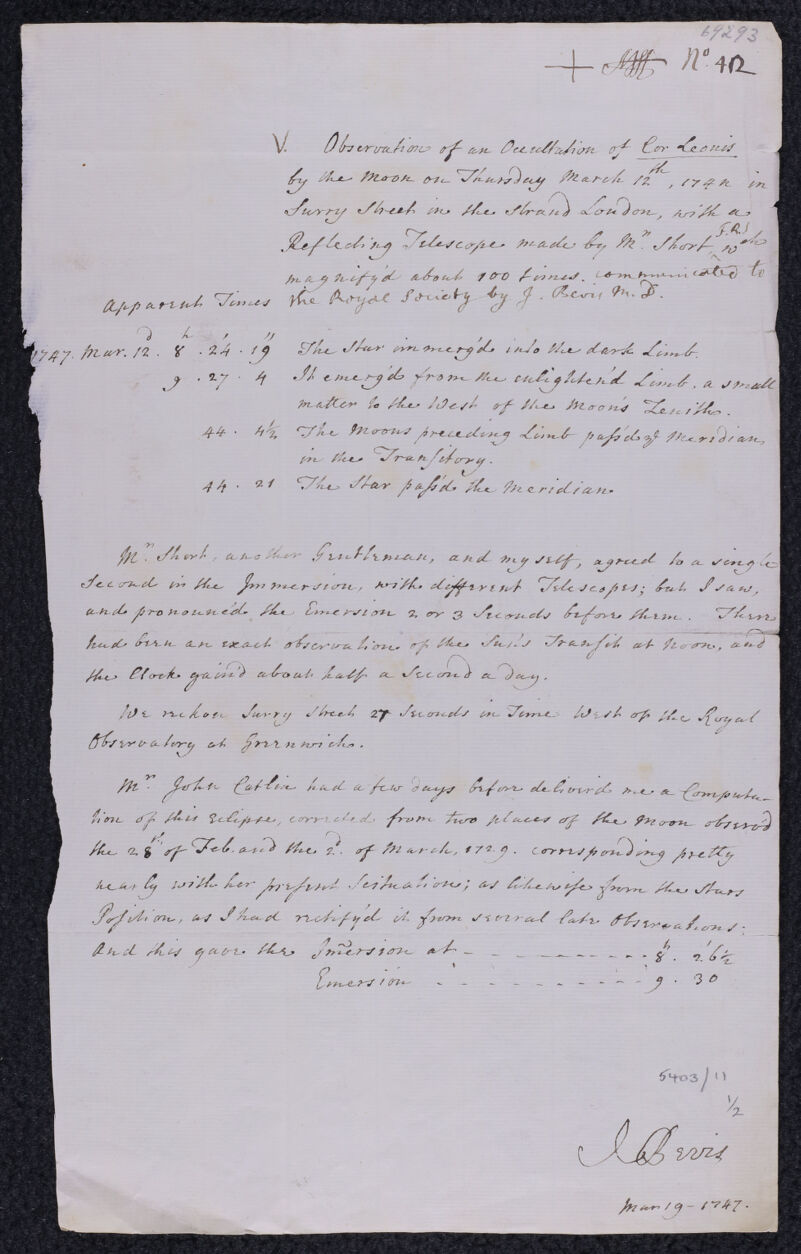 69293
+ No. 412
V. Observation of an Occultation of Cor Leonis
by the Moon on Thursday March 12th, 1747 in
Surry Street in the Strand London, with a
Reflecting Telescope made by Mr. Short F.R.S wch
magnify'd about 100 times. communicated to
the Royal Society by J. Bevis M.D.
Apparent Times
1747. Mar. 12d. 8h. 24'. 19" The Star immerg'd into the dark Limb.
9. 27. 4 It emerg'd from the enlighten'd Limb, a small
matter to the West of the Moon's Zenith.
44. 4½ The Moons preceding Limb pass'd ye Meridian
in the Transitory.
44. 21 The Star pass'd the Meridian
Mr. Short, another Gentleman, and my self, agreed to a single
Second in the Immersion, with different Telescopes; but I saw,
and pronounc'd the Emersion 2 or 3 Seconds before them. There
had been an exact observation of the Sun's Transit at Noon, and
the Clock gain'd about half a Second a day.
We reckon Surry Street 27 Seconds in Time West of the Royal
Observatory at Greenwich.
Mr. John Catlin had a few days before deliver'd me a Computa-
tion of this Eclipse, corrected from two places of the Moon observ'd
the 28th of Feb. and the 2d. of March, 1729. corresponding pretty
nearly with her present Scituation; as likewise from the Stars
Position, as I had rectify'd it from several late Observations:
And this gave the Im̄ersion at - - - - - - - - 8h. 26'½
Emersion - - - - - - - - - - 9. 30
5403/11
1/2
J Bevis
Mar 19 - 1747.